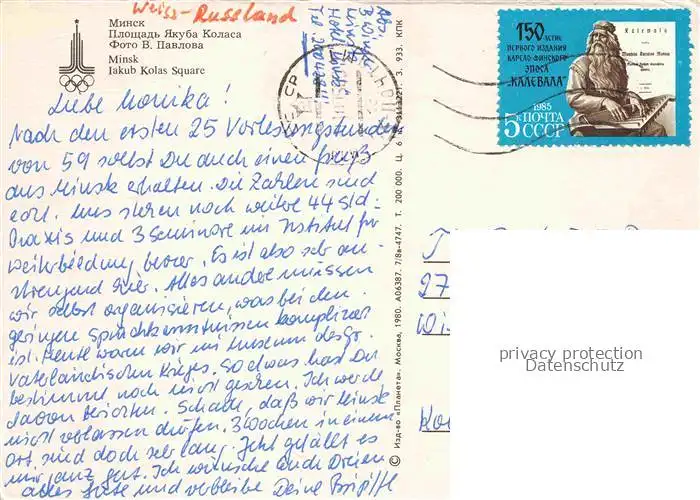 Weiss-Russland
Минск
Площадь Якуба Коласа
Фото В. Павлова
Minsk
Iakub Kolas Square
Liebe Monika!
Nach den ersten 25 Vorlesungsstunden
von 59 sollst Du auch einen Gruß
aus Minsk erhalten. Die Zahlen sind
echt. Uns stehen noch weitere 44 Std.
Praxis und 3 Seminare im Institut für
Weiterbildung bevor. Es ist also sehr an-
strengend hier. Alles andere müssen
wir selbst organisieren, was bei den
geringen Sprachkenntnissen kompliziert
ist. Heute waren wir im Museum des Gr.
Vaterländischen Krieges. So etwas hast Du
bestimmt noch nicht gesehen. Ich werde
davon berichten. Schade, daß wir Minsk
nicht verlassen dürfen. 3 Wochen in einem
Ort sind doch sehr lang. Jetzt gefällt es
mir ganz gut. Ich wünsche Euch Dreien
alles Gute und verbleibe Deine
© Изд-во «Планета». Москва, 1980. А06387. 7/8а-4747. Т. 200 000. Ц. 6 к. З. 933. КПК
150-ЛЕТИЕ
ПЕРВОГО ИЗДАНИЯ
КАРЕЛО-ФИНСКОГО
ЭПОСА
"КАЛЕВАЛА"
Kalewala
1985
5К ПОЧТА
СССР
27
Wi
privacy protection
Datenschutz